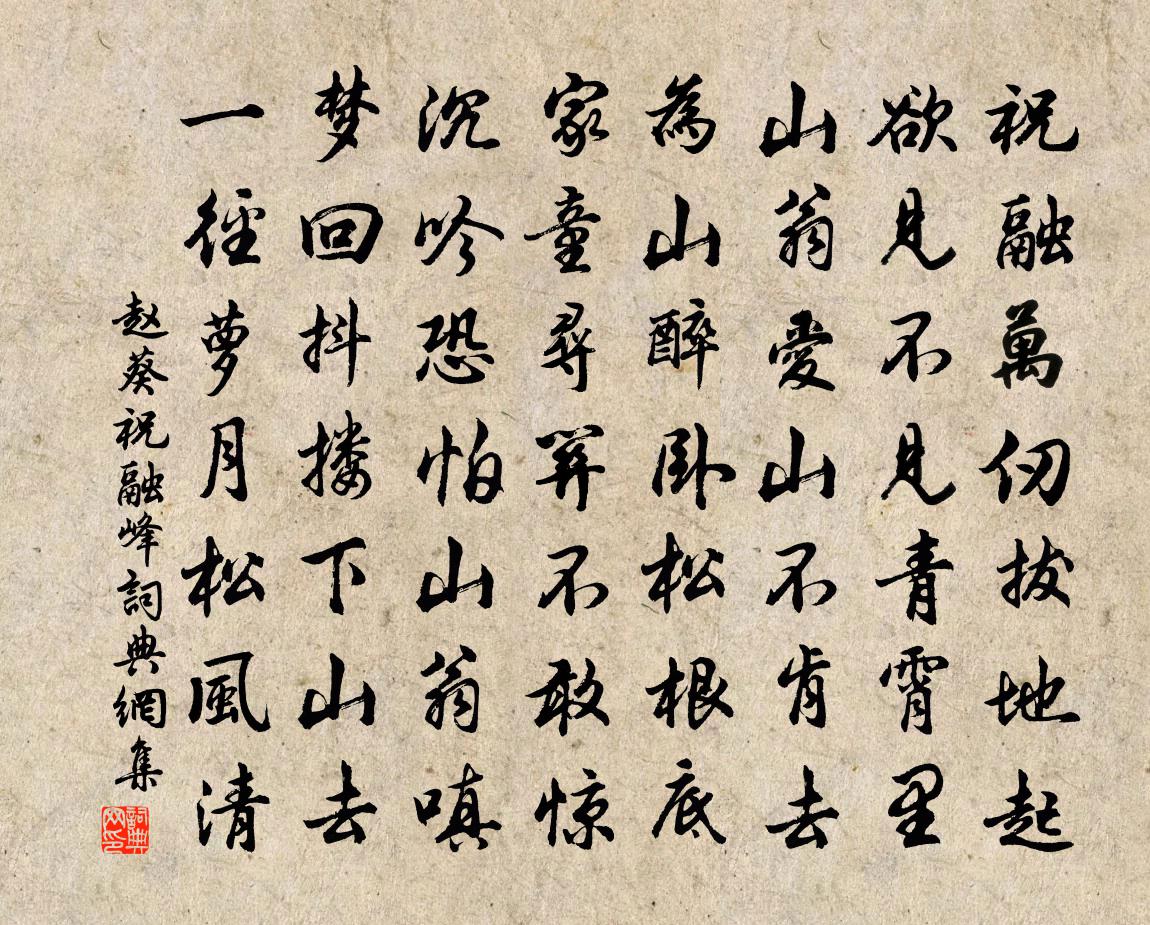 祝融萬仞拔地起
欲見不見青霄里
山翁愛山不肯去
為山醉卧松根底
家童尋著不敢惊
沉吟恐怕山翁嗔
梦回抖擞下山去
一徑萝月松風清
赵葵祝融峰詞典網集
詞典网印